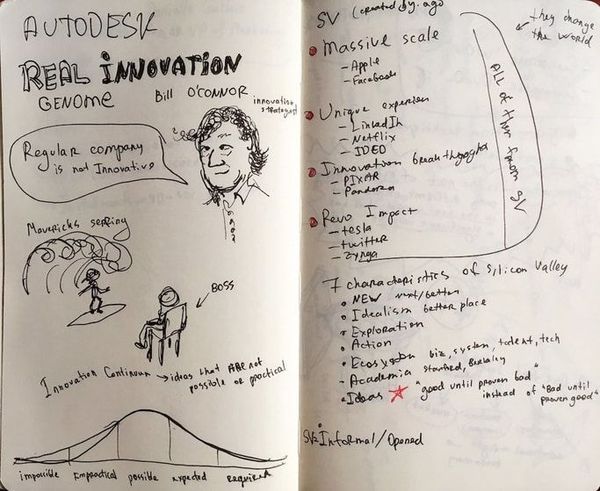 AUTODESK
REAL INNOVATION
GENOME
Bill O'CONNOR
innovation
strategist
Regular company
is not Innovative
Mavericks surfing
BOSS
Innovation Continuum → ideas that ARE not
possible or practical
impossible Impractical possible expected required
SV (created by. ago)
they change
the world
Massive scale
- Apple
- Facebook
Unique experien
- LinkedIn
- Netflix
- IDEO
Innovation breakthroughs
- PIXAR
- Pandora
Revo Impact
- tesla
- twitter
- zynga
ALL of them from SV
7 characteristics of Silicon Valley
NEW next/better
Idealism better place
Exploration
Action
Ecosystem biz, system, talent, tech
Academia Stanford, Berkeley
Ideas "good until proven bad"
instead of "Bad until
proven good"
SV: Informal/Opened